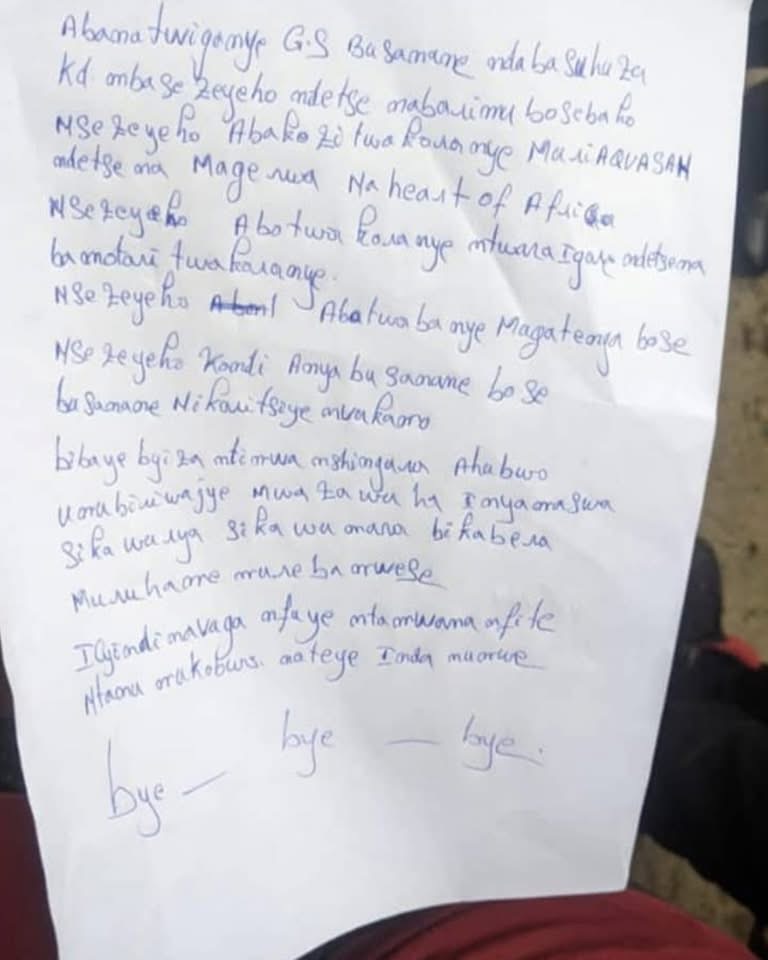 Abana twiganye G.S Basamane ndabasuhuza
Kd mbasezeyeho ndetse nabarimu bosebaho
Nsezeyeho Abakozi twakoranye Muri AQUASAN
ndetse na Magerwa Na heart of Africa
Nsezeyeho Abotwakoranye ntwara Igare ndetse na
bamotari twakoranye.
Nsezeyeho Abatwabanye Magatenya bose
Nsezeyeho Kandi Aonya busamane bose
basamane Nikavitseye
bibaye byiza ntimwa nshingura Ahubwo
umubiriwajye Mwazawuha Inyamaswa
Zikawurya Zikawumara bikabera
Muruhame murebamwese
Ikindi mavaga mfuye ntamwana mfite
Ntanu mukobwa nateye Inda murwe
bye — bye — bye.